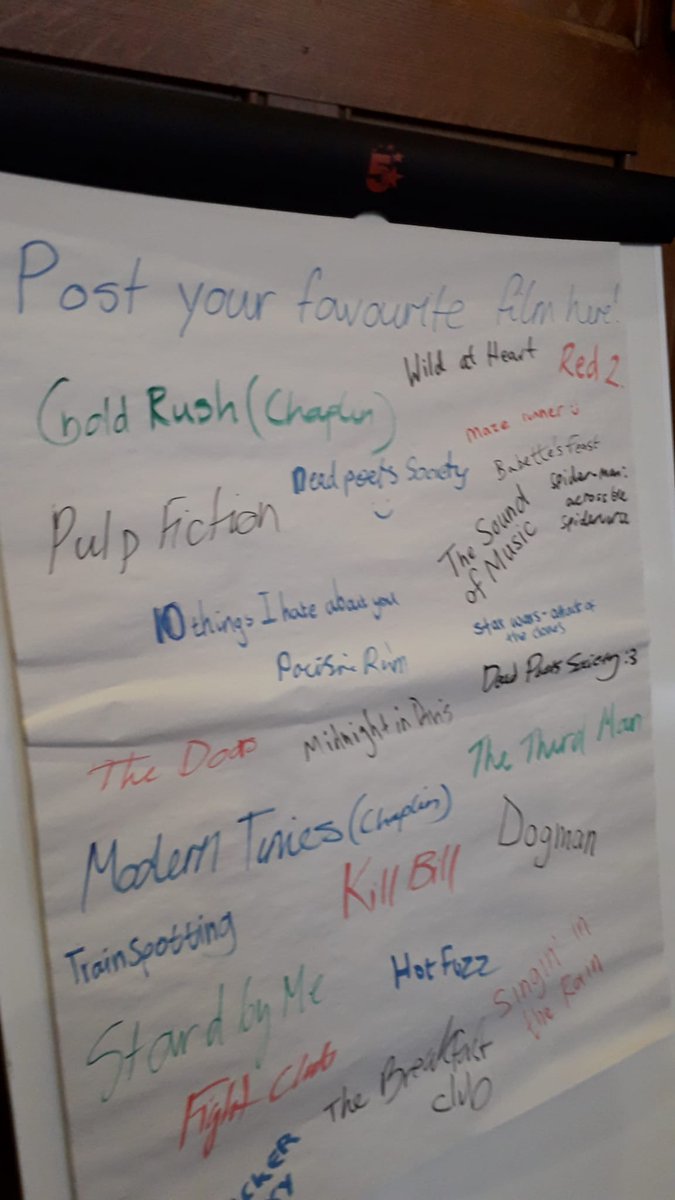 5
Post your favourite film here!
Wild at Heart
Red 2
Gold Rush (Chaplin)
Maze runner
Dead poets Society
Babette's Feast
Spider-man:
across the
spiderverse
Pulp Fiction
The Sound
of Music
10 things I hate about you
Star wars - attack of
the clones
Pacific Rim
Dead Poets Society :3
The Doors
Midnight in Paris
The Third Man
Modern Times (Chaplin)
Dogman
Kill Bill
Trainspotting
Hot Fuzz
Stand by Me
Singin' in
the Rain
Fight Club
The Breakfast
club